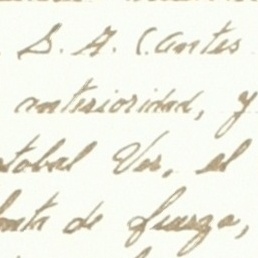 S. A. (antes
anterioridad, y
tobal Ver, el
de fuerza,